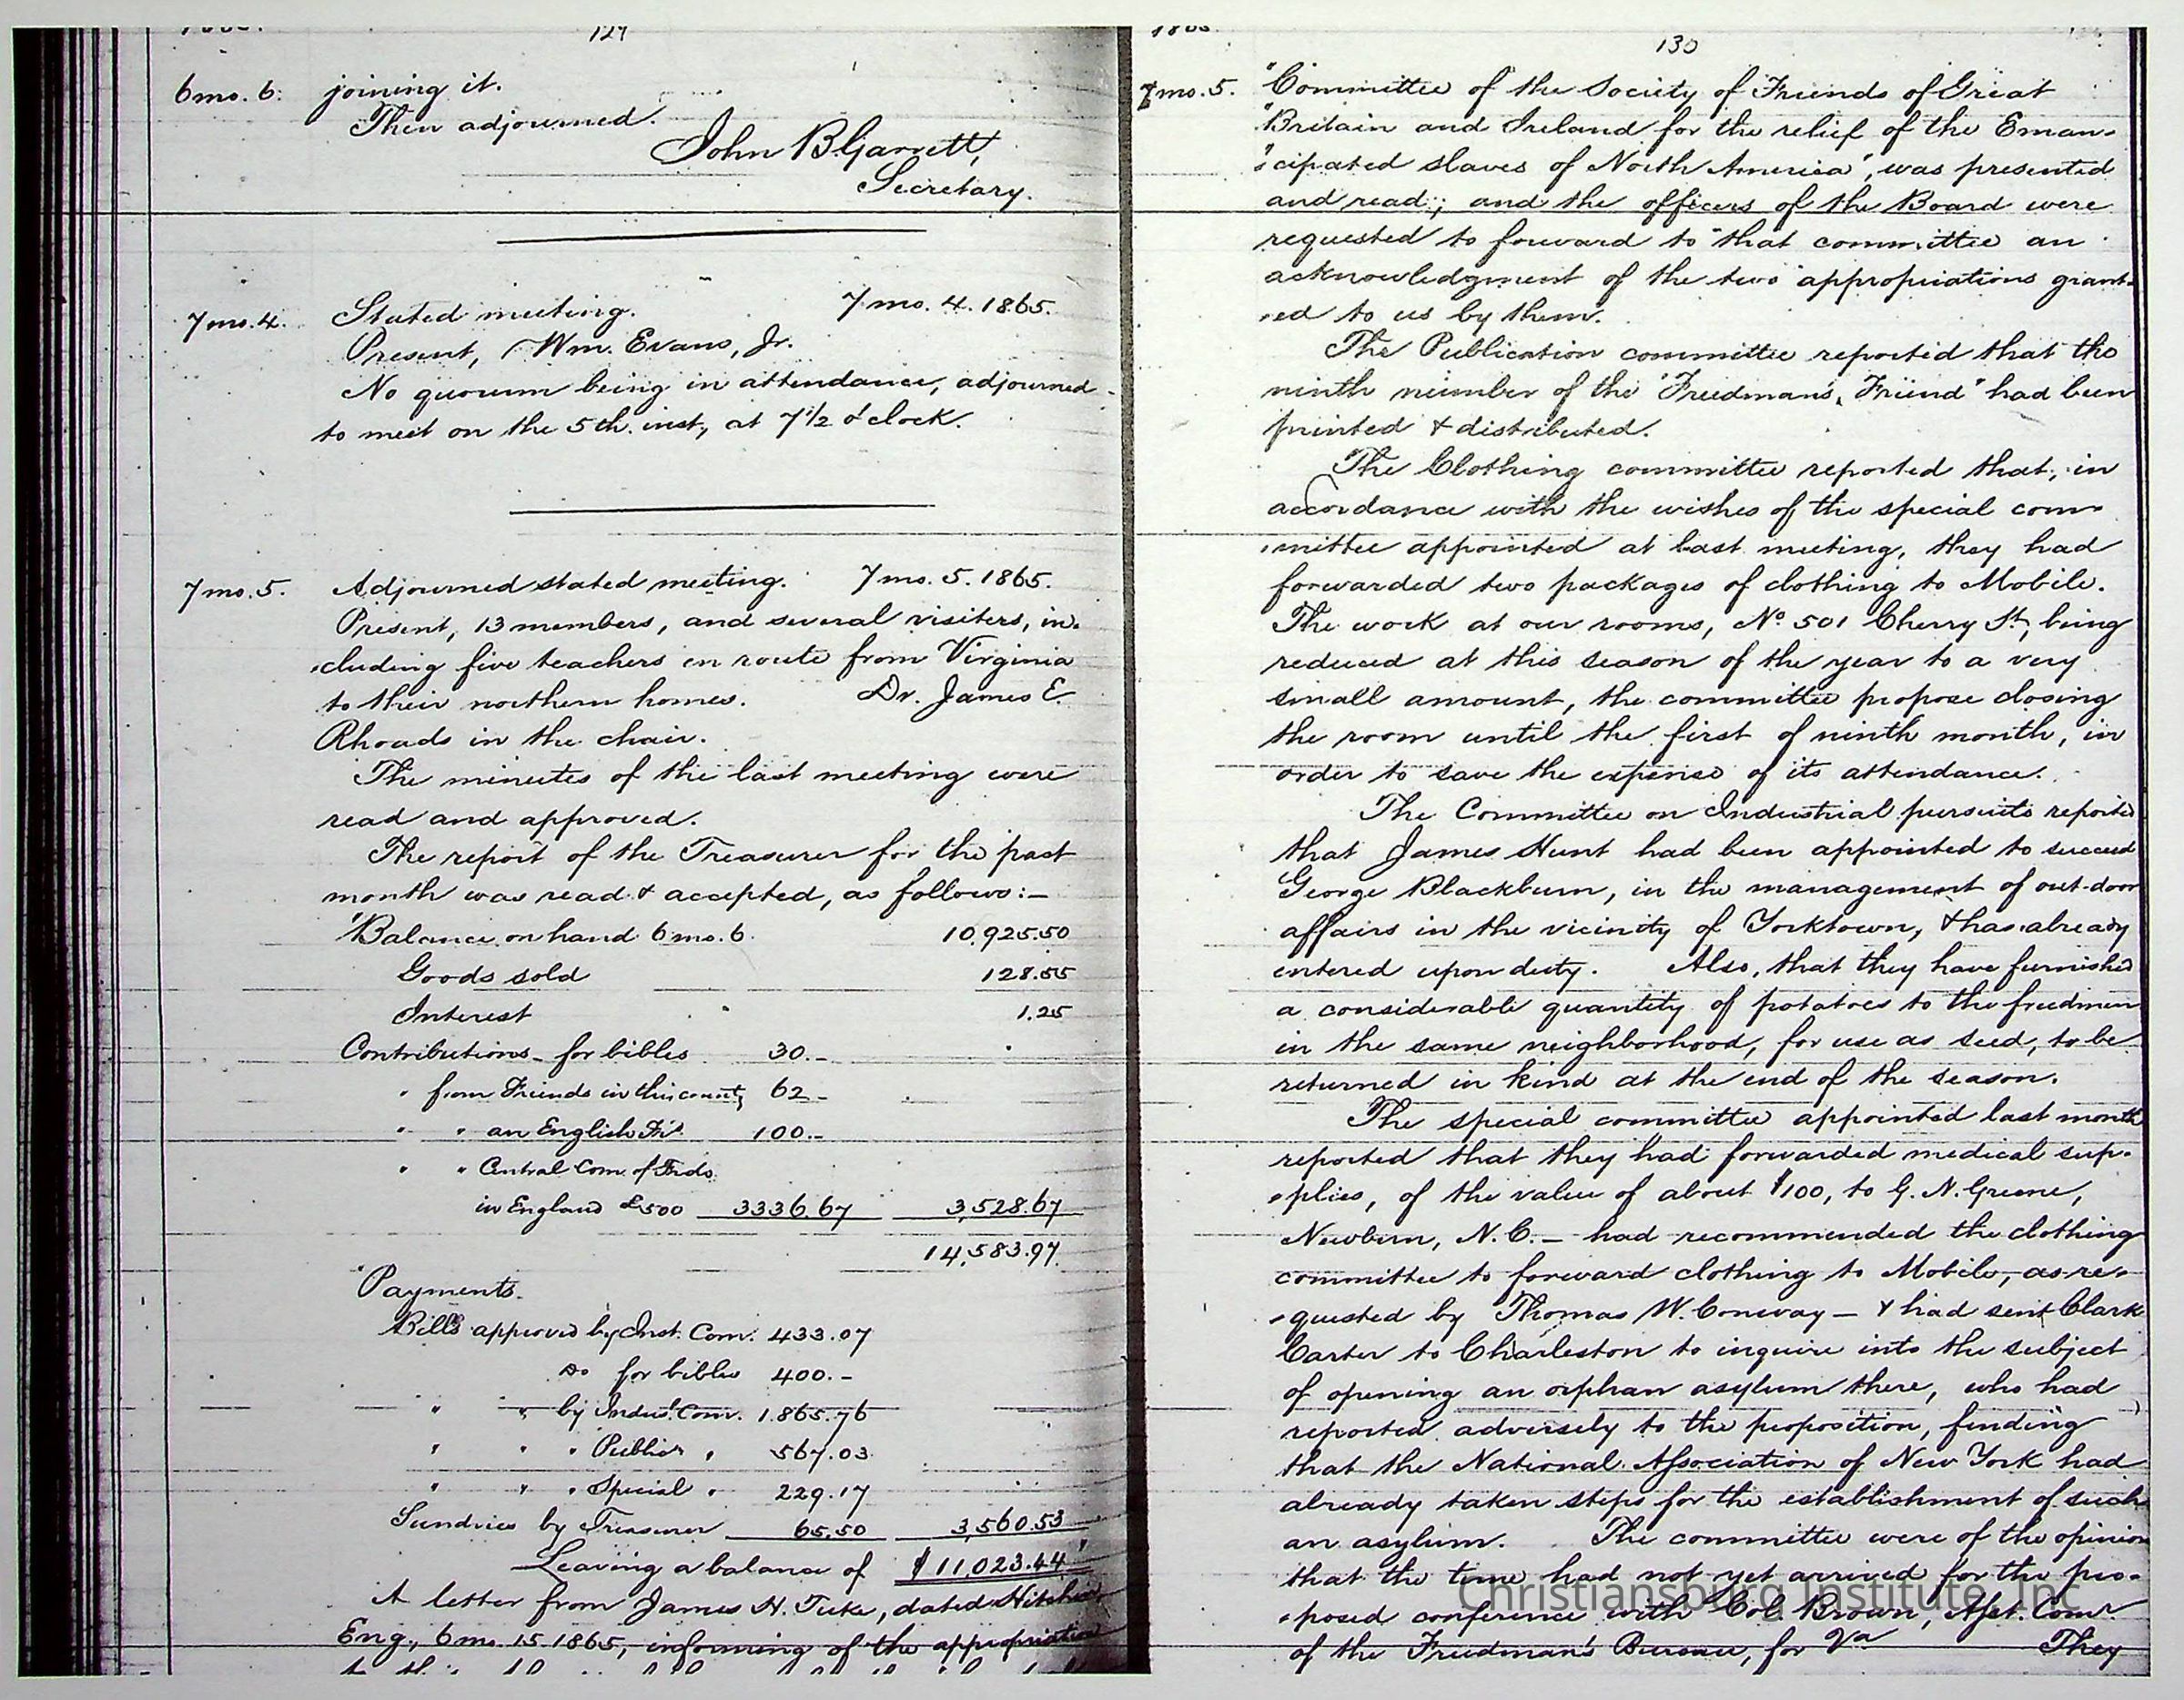 129
6 mo. 6. joining it.
Then adjourned.
John B Garrett,
Secretary.
7 mo. 4. Stated meeting. 7 mo. 4. 1865.
Present, Wm. Evans, Jr.
No quorum being in attendance, adjourned
to meet on the 5th. inst, at 7 1/2 o'clock.
7 mo. 5. Adjourned stated meeting. 7 mo. 5. 1865.
Present, 13 members, and several visiters, in-
-cluding five teachers en route from Virginia
to their northern homes. Dr. James E.
Rhoads in the chair.
The minutes of the last meeting were
read and approved.
The report of the Treasurer for the past
month was read & accepted, as follows:-
"Balance on hand 6 mo. 6. 10,925.50
Goods sold 128.55
Interest 1.25
Contributions - for bibles 30.-
" from Friends in this country 62-
" " an English Frd. 100.-
" " Central Com. of Frds.
in England £500 3336.67 3,528.67
14,583.97
"Payments.
Bills approved by Inst. Com. 433.07
Do for bibles 400.-
" " by Indus. Com. 1.865.76
" " " Publicn " 567.03
" " " Special " 229.17
Sundries by Treasurer 65.50 3,560.53
Leaving a balance of $11,023.44"
A letter from James H. Tuke, dated Hitchin
Eng., 6 mo. 15. 1865, informing of the appropriation
130
7 mo. 5. "Committee of the Society of Friends of Great
"Britain and Ireland for the relief of the Eman-
"cipated slaves of North America", was presented
and read; and the officers of the Board were
requested to forward to that committee an
acknowledgment of the two appropriations grant-
-ed to us by them.
The Publication committee reported that the
ninth number of the "Freedman's Friend" had been
printed & distributed.
The Clothing committee reported that, in
accordance with the wishes of the special com-
-mittee appointed at last meeting, they had
forwarded two packages of clothing to Mobile.
The work at our rooms, No. 501 Cherry St, being
reduced at this season of the year to a very
small amount, the committee propose closing
the room until the first of ninth month, in
order to save the expense of its attendance.
The Committee on Industrial pursuits reported
that James Hunt had been appointed to succeed
George Blackburn, in the management of out-door
affairs in the vicinity of Yorktown, & has already
entered upon duty. Also, that they have furnished
a considerable quantity of potatoes to the freedmen
in the same neighborhood, for use as seed, to be
returned in kind at the end of the season.
The special committee appointed last month
reported that they had forwarded medical sup-
-plies, of the value of about $100, to G. N. Greene,
Newbern, N.C. - had recommended the clothing
committee to forward clothing to Mobile, as re-
-quested by Thomas W. Conway - & had sent Clark
Carter to Charleston to inquire into the subject
of opening an orphan asylum there, who had
reported adversely to the proposition, finding
that the National Association of New York had
already taken steps for the establishment of such
an asylum. The committee were of the opinion
that the time had not yet arrived for the pro-
-posed conference with Col Brown, Asst. Comr.
of the Freedman's Bureau, for Va They
Christiansburg Institute, Inc